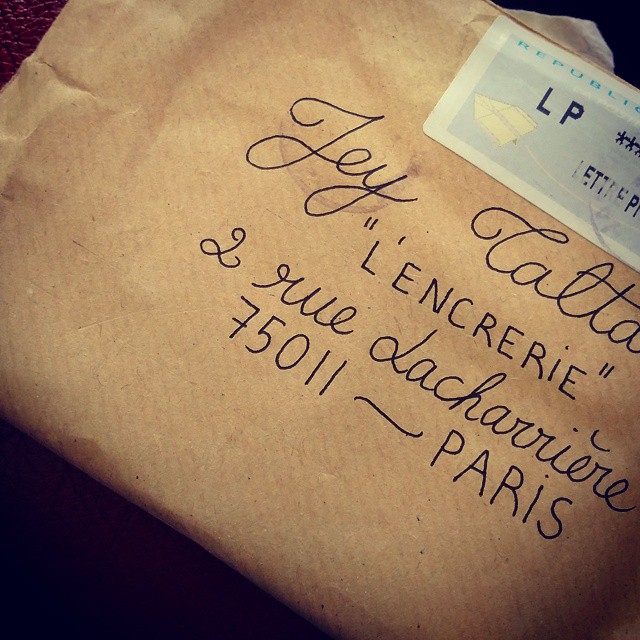 REPUBLI
LP ***
LETTRE P
Jey Talta
"L'ENCRERIE"
2 rue Lacharrière
75011 ~ PARIS